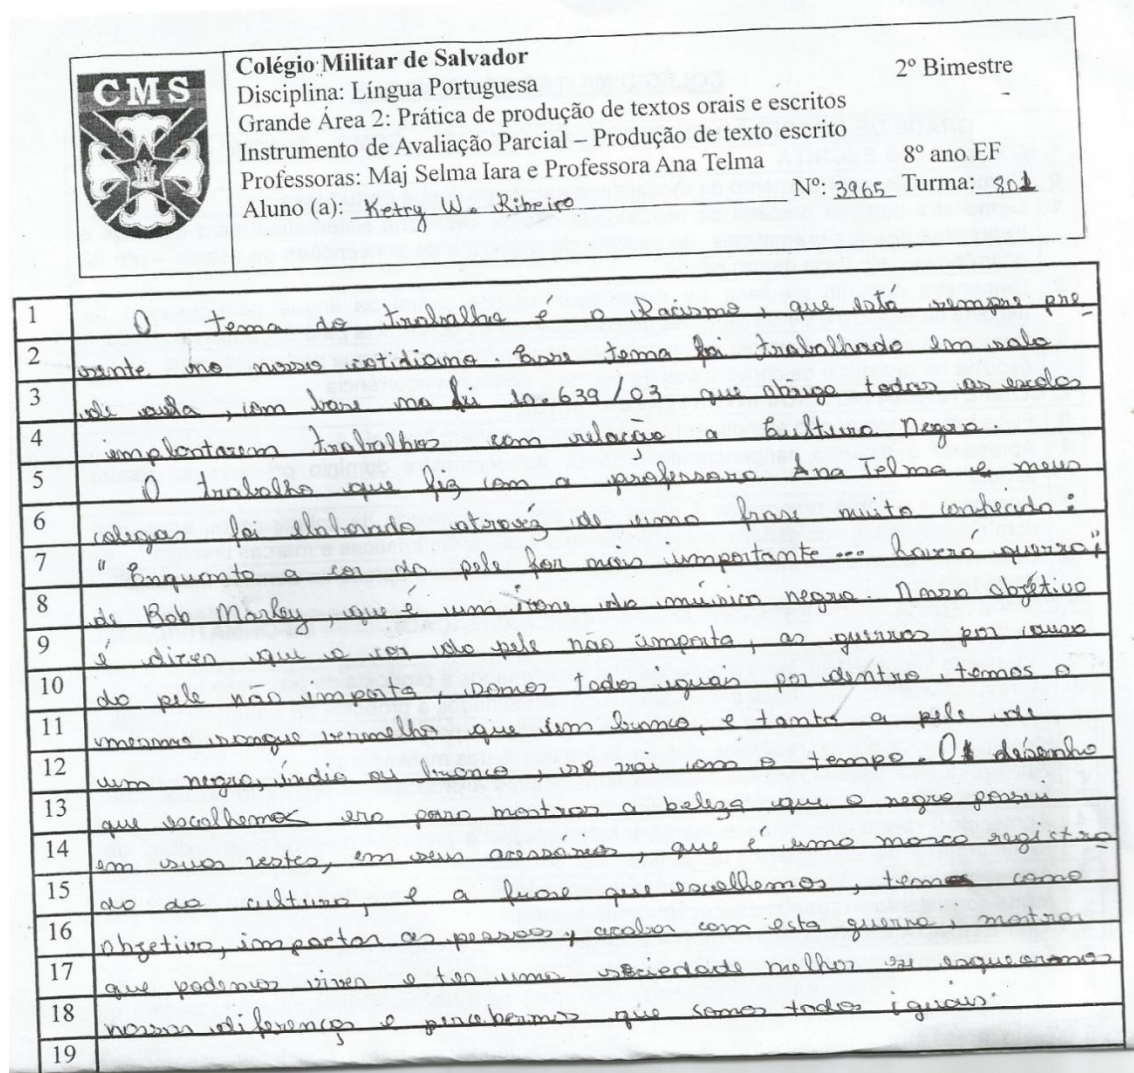 CMS
Colégio Militar de Salvador
2º Bimestre
Disciplina: Língua Portuguesa
Grande Área 2: Prática de produção de textos orais e escritos
Instrumento de Avaliação Parcial – Produção de texto escrito
Professoras: Maj Selma Iara e Professora Ana Telma
8º ano EF
Aluno (a): Ketry W. Ribeiro Nº: 3965 Turma: 801
1 O tema do trabalho é o Racismo, que está sempre pre-
2 sente no nosso cotidiano. Esse tema foi trabalhado em sala
3 de aula, com base na lei 10.639/03 que obriga todas as escolas
4 implantarem trabalhos com relação a Cultura Negra.
5 O trabalho que fiz com a professora Ana Telma e meus
6 colegas foi elaborado atravéz de uma frase muito conhecida:
7 "Enquanto a cor da pele for mais importante... haverá guerra",
8 de Bob Marley, que é um ícone da música negra. Nosso objetivo
9 é dizer que a cor da pele não importa, as guerras por causa
10 da pele não importa, somos todos iguais por dentro, temos o
11 mesmo sangue vermelho que sem banca, e tanto a pele de
12 um negro, índio ou branco, se vai com o tempo. O desenho
13 que escolhemos era para mostrar a beleza que o negro possui
14 em suas vestes, em seus acessórios, que é uma marca registra-
15 do da cultura, e a frase que escolhemos, tem como
16 objetivo, impactar as pessoas, acabar com esta guerra, mostrar
17 que podemos viver e ter uma sociedade melhor se esquecermos
18 nossas diferenças e percebermos que somos todos iguais.
19